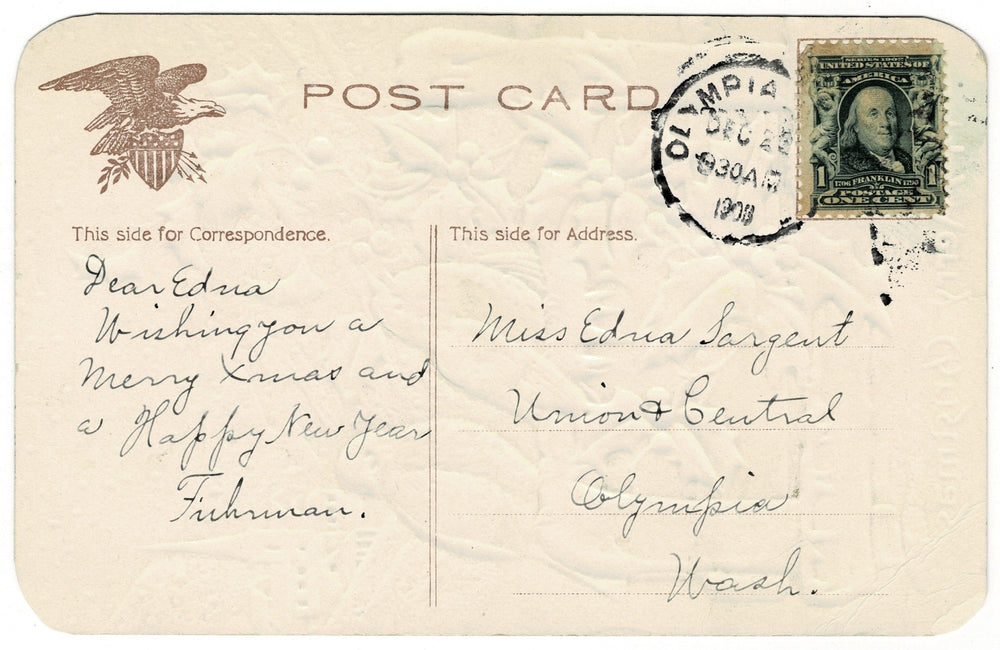 POST CARD
OLYMPIA
DEC 2
830 AM
190
SERIES 1902
UNITED STATES OF
AMERICA
1 1706 FRANKLIN 1790 1
POSTAGE
ONE CENT
This side for Correspondence.
Dear Edna
Wishing you a
Merry Xmas and
a Happy New Year
Fuhrman.
This side for Address.
Miss Edna Sargent
Union & Central
Olympia
Wash.